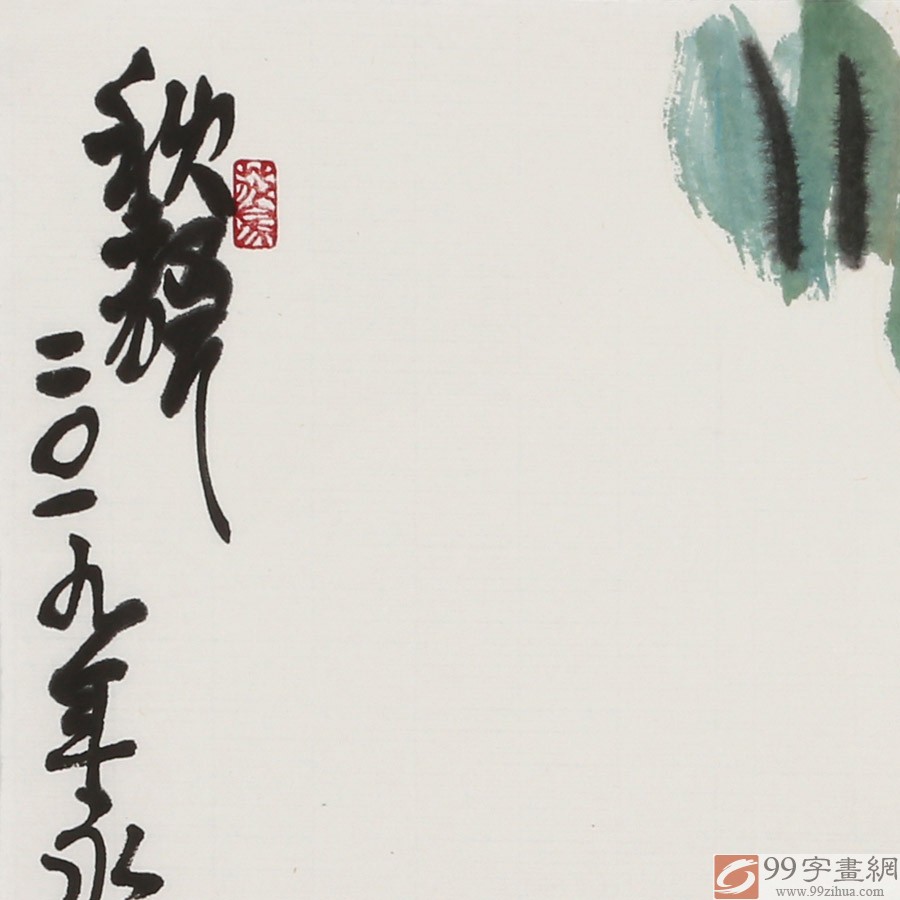 秋声
二〇一九年永
99字畫網
www.99zihua.com